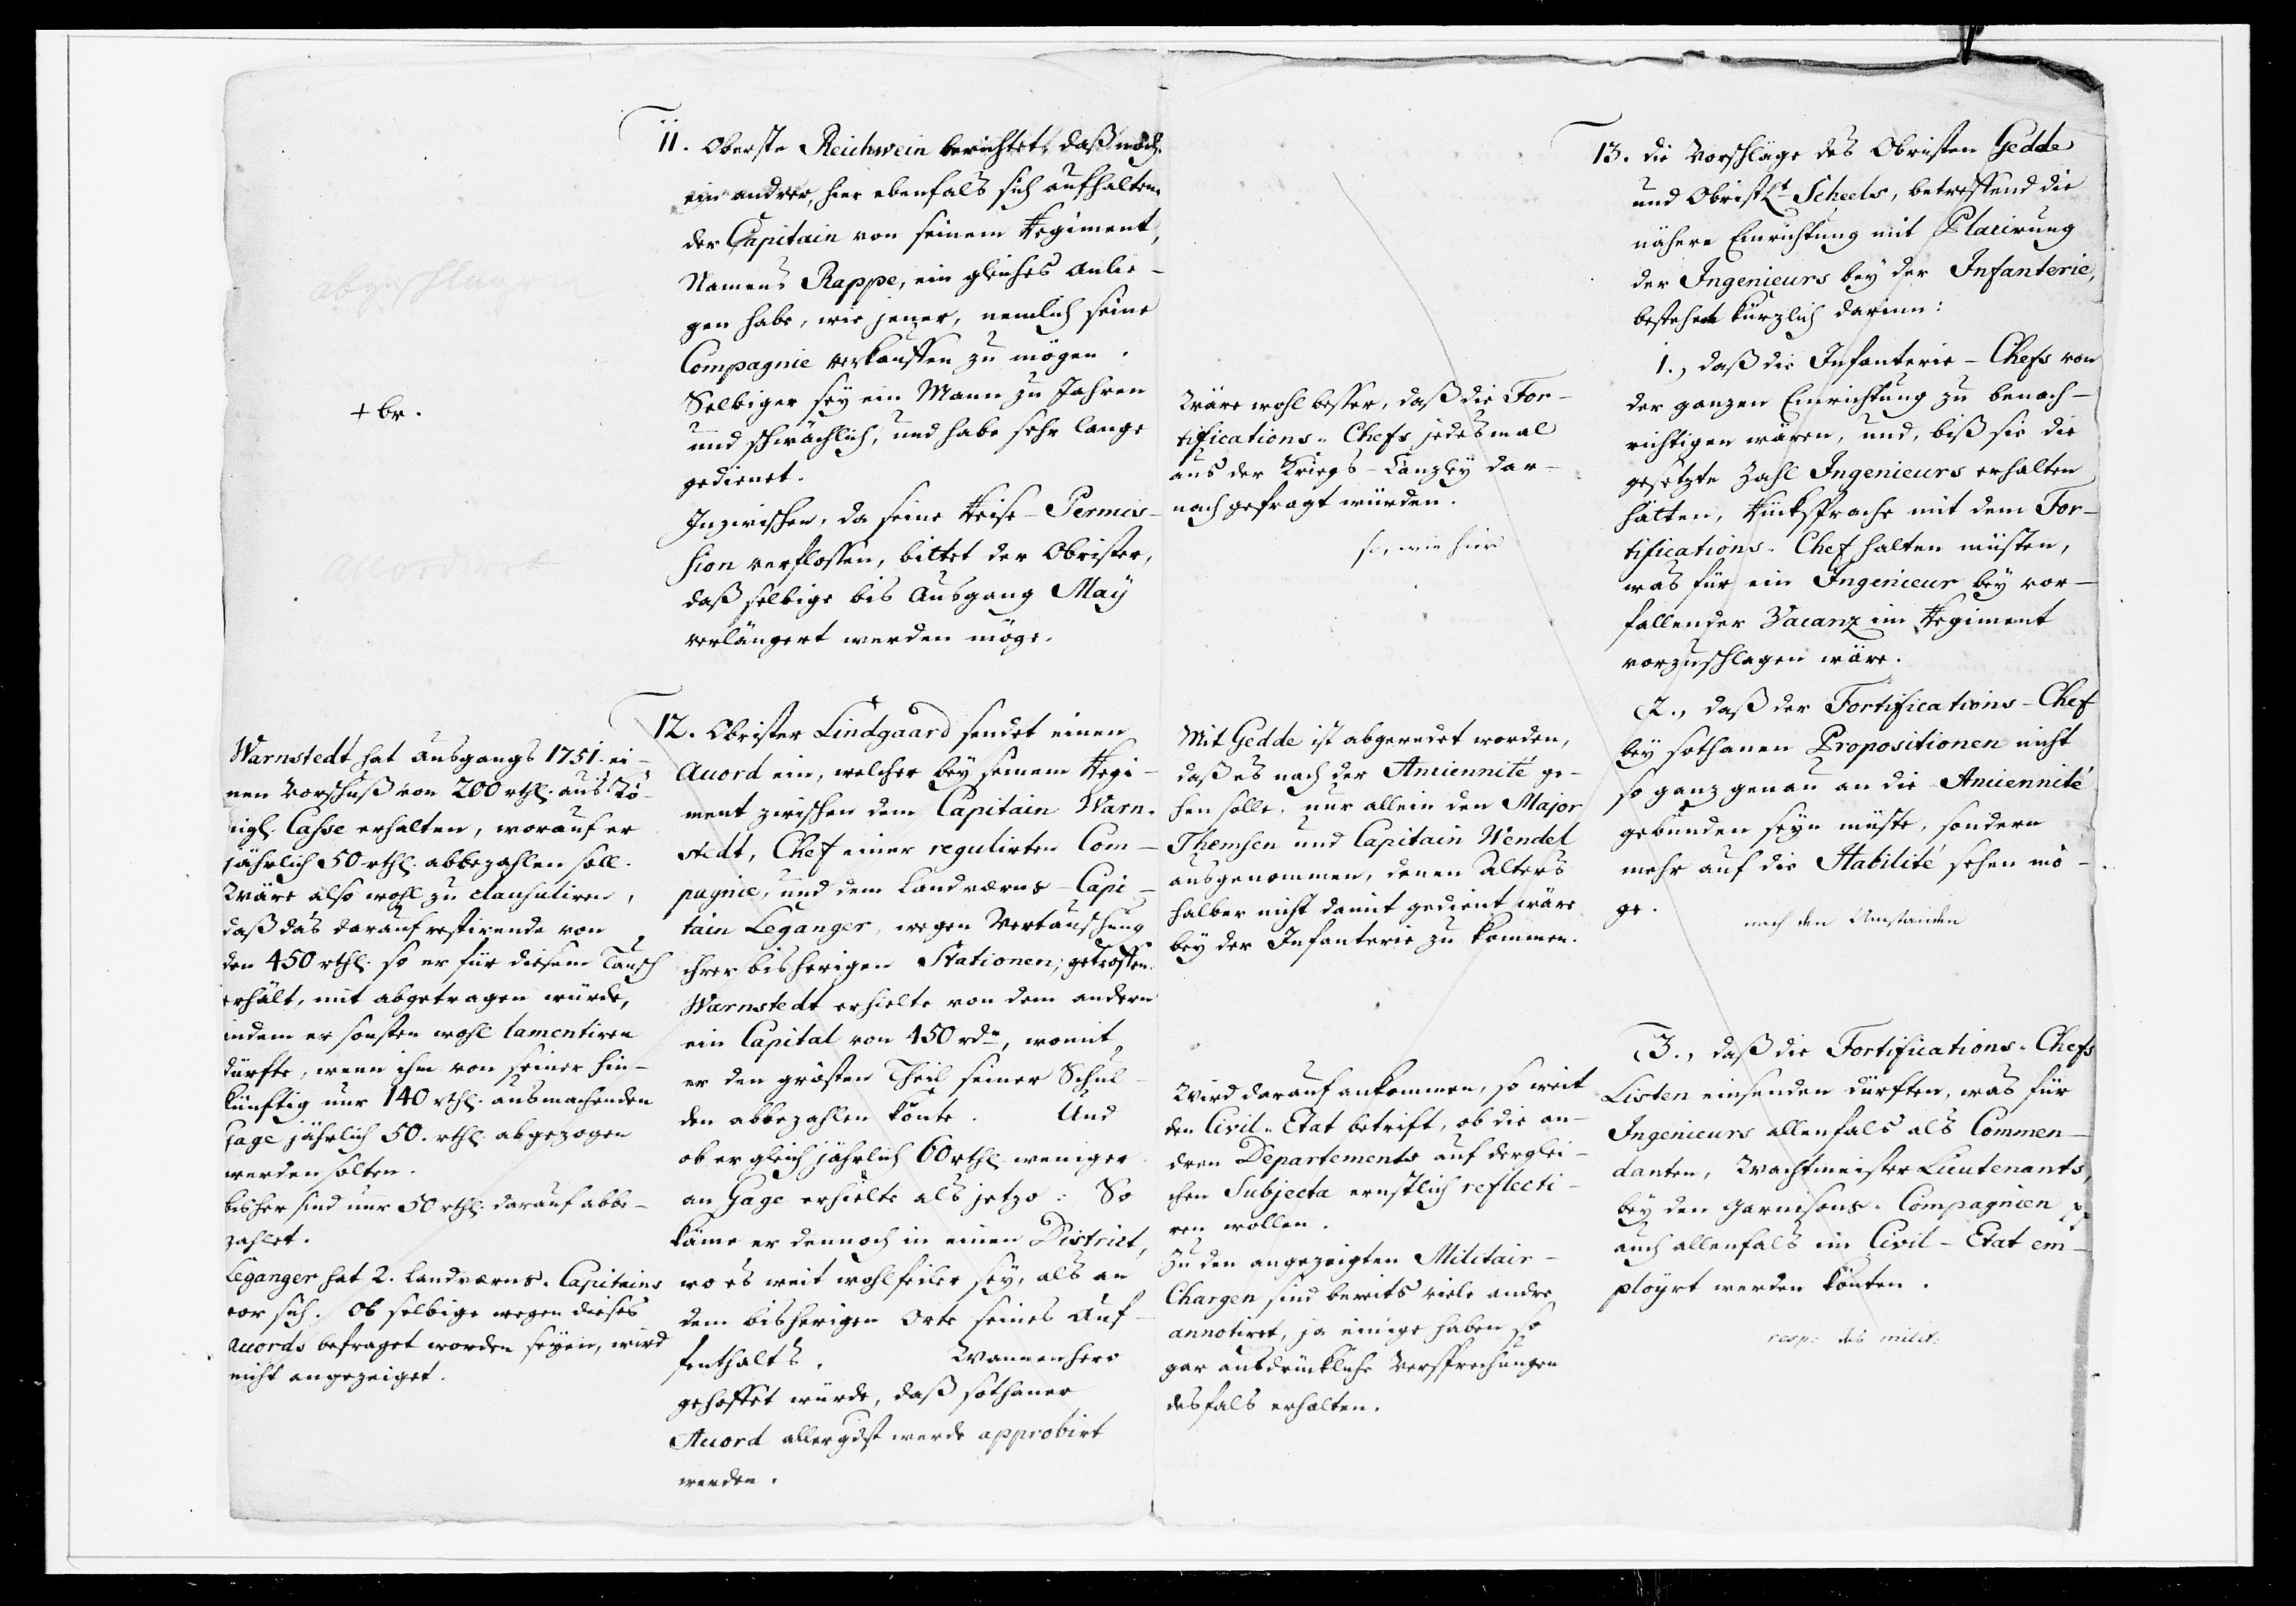 abgeschlagen
+ br.
accordiret
Warnstedt hat ausgangs 1751. ei-
nen Vorschuß von 200 rthl. aus Kö-
nigl. Casse erhalten, worauf er
jährlich 50 rthl. abbezahlen soll.
Wäre also wohl zu clausuliren,
daß das darauf restirende von
den 450 rthl. so er für diesem Tausch
erhält, mit abgetragen würde,
indem er sonsten wohl lamentiren
dürfte, wenn ihm von seiner hin-
künftig nur 140 rthl. ausmachenden
Gage jährlich 50. rthl. abgezogen
werden solten.
bisher sind nur 50 rthl. darauf abbe-
zahlet.
Leganger hat 2. Landværns-Capitains
vor sich. Ob selbige wegen dieses
Accords befraget worden seyen, wird
nicht angezeiget.
11. Oberste Reichwein berichtet, daß noch
ein andrer, hier ebenfals sich aufhalten-
der Capitain von seinem Regiment,
Namens Rappe, ein gleiches Anlie-
gen habe, wie jener, nemlich seine
Compagnie verkauffen zu mögen.
Selbiger sey ein Mann zu Jahren
und schwächlich, und habe sehr lange
gedienet.
Inzwischen, da seine Reise-Permis-
sion verflossen, bittet der Obrister,
daß selbige bis Ausgang May
verlängert werden möge.
12. Obrister Lindgaard sendet einen
Accord ein, welcher bey seinem Regi-
ment zwischen dem Capitain Warn-
stedt, Chef einer regulirten Com-
pagnie, und dem Landværns-Capi-
tain Leganger, wegen Vertauschung
ihrer bisherigen Stationen, getroffen.
Warnstedt erhielte von dem andern
ein Capital von 450 rdr, womit
er den grösten Theil seiner Schul-
den abbezahlen könte. Und
ob er gleich jährlich 60 rthl. weniger
an Gage erhielte als jetzo: So
käme er dennoch in einen District,
wo es weit wohlfeiler sey, als an
dem bisherigen Orte seines Auf-
fenthalts. Wannenhero
gehoffet würde, daß sothaner
Accord allergdst werde approbirt
werden.
Wäre wohl besser, daß die For-
tifications-Chefs jedesmal
aus der Kriegs-Canzley dar-
nach gefragt würden.
so, wie hier
Mit Gedde ist abgeredet worden,
daß es nach der Anciennité ge-
hen solle. nur allein den Major
Themsen und Capitain Wendel
ausgenommen, denen Alters
halber nicht damit gedient wäre
bey der Infanterie zu kommen.
Wird darauf ankommen, so weit
den Civil-Etat betrift, ob die an-
dren Departements auf derglei-
chen Subjecta ernstlich reflecti-
ren wollen.
Zu den angezeigten Militair-
Chargen sind bereits viele andre
annotiret, ja einige haben so
gar ausdrückliche Versprechungen
desfals erhalten.
13. die Vorschläge des Obristen Gedde
und Obristlt Scheels, betreffend die
nähere Einrichtung mit Placirung
der Ingenieurs bey der Infanterie,
bestehen kürzlich darinn:
1., daß die Infanterie-Chefs von
der ganzen Einrichtung zu benach-
richtigen wären, und, biß sie die
gesetzte Zahl Ingenieurs erhalten
hätten, Rücksprache mit dem For-
tifications-Chef halten müsten,
was für ein Ingenieur bey vor-
fallender Vacanz im Regiment
vorzuschlagen wäre.
2., daß der Fortifications-Chef
bey sothanen Propositionen nicht
so ganz genau an die Anciennité
gebunden seyn müste, sondern
mehr auf die Habilité sehen mö-
ge.
nach den Umständen
3., daß die Fortifications-Chefs
Listen einsenden dürften, was für
Ingenieurs allenfals als Commen-
danten, Wachtmeister Lieutenants,
bey den Garnisons-Compagnien pp
auch allenfals im Civil-Etat em-
ployrt werden könten.
resp: des milit: